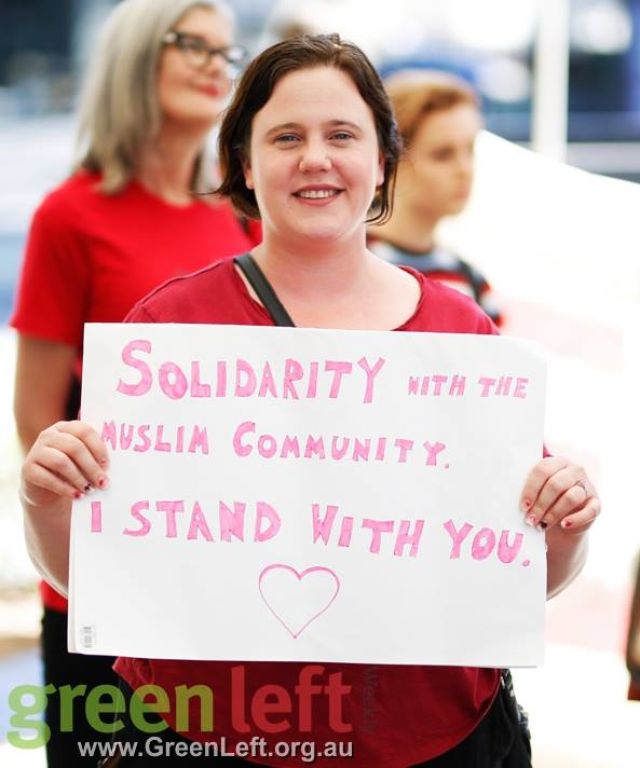 SOLIDARITY WITH THE
MUSLIM COMMUNITY.
I STAND WITH YOU.
green left
Weekly
www.GreenLeft.org.au